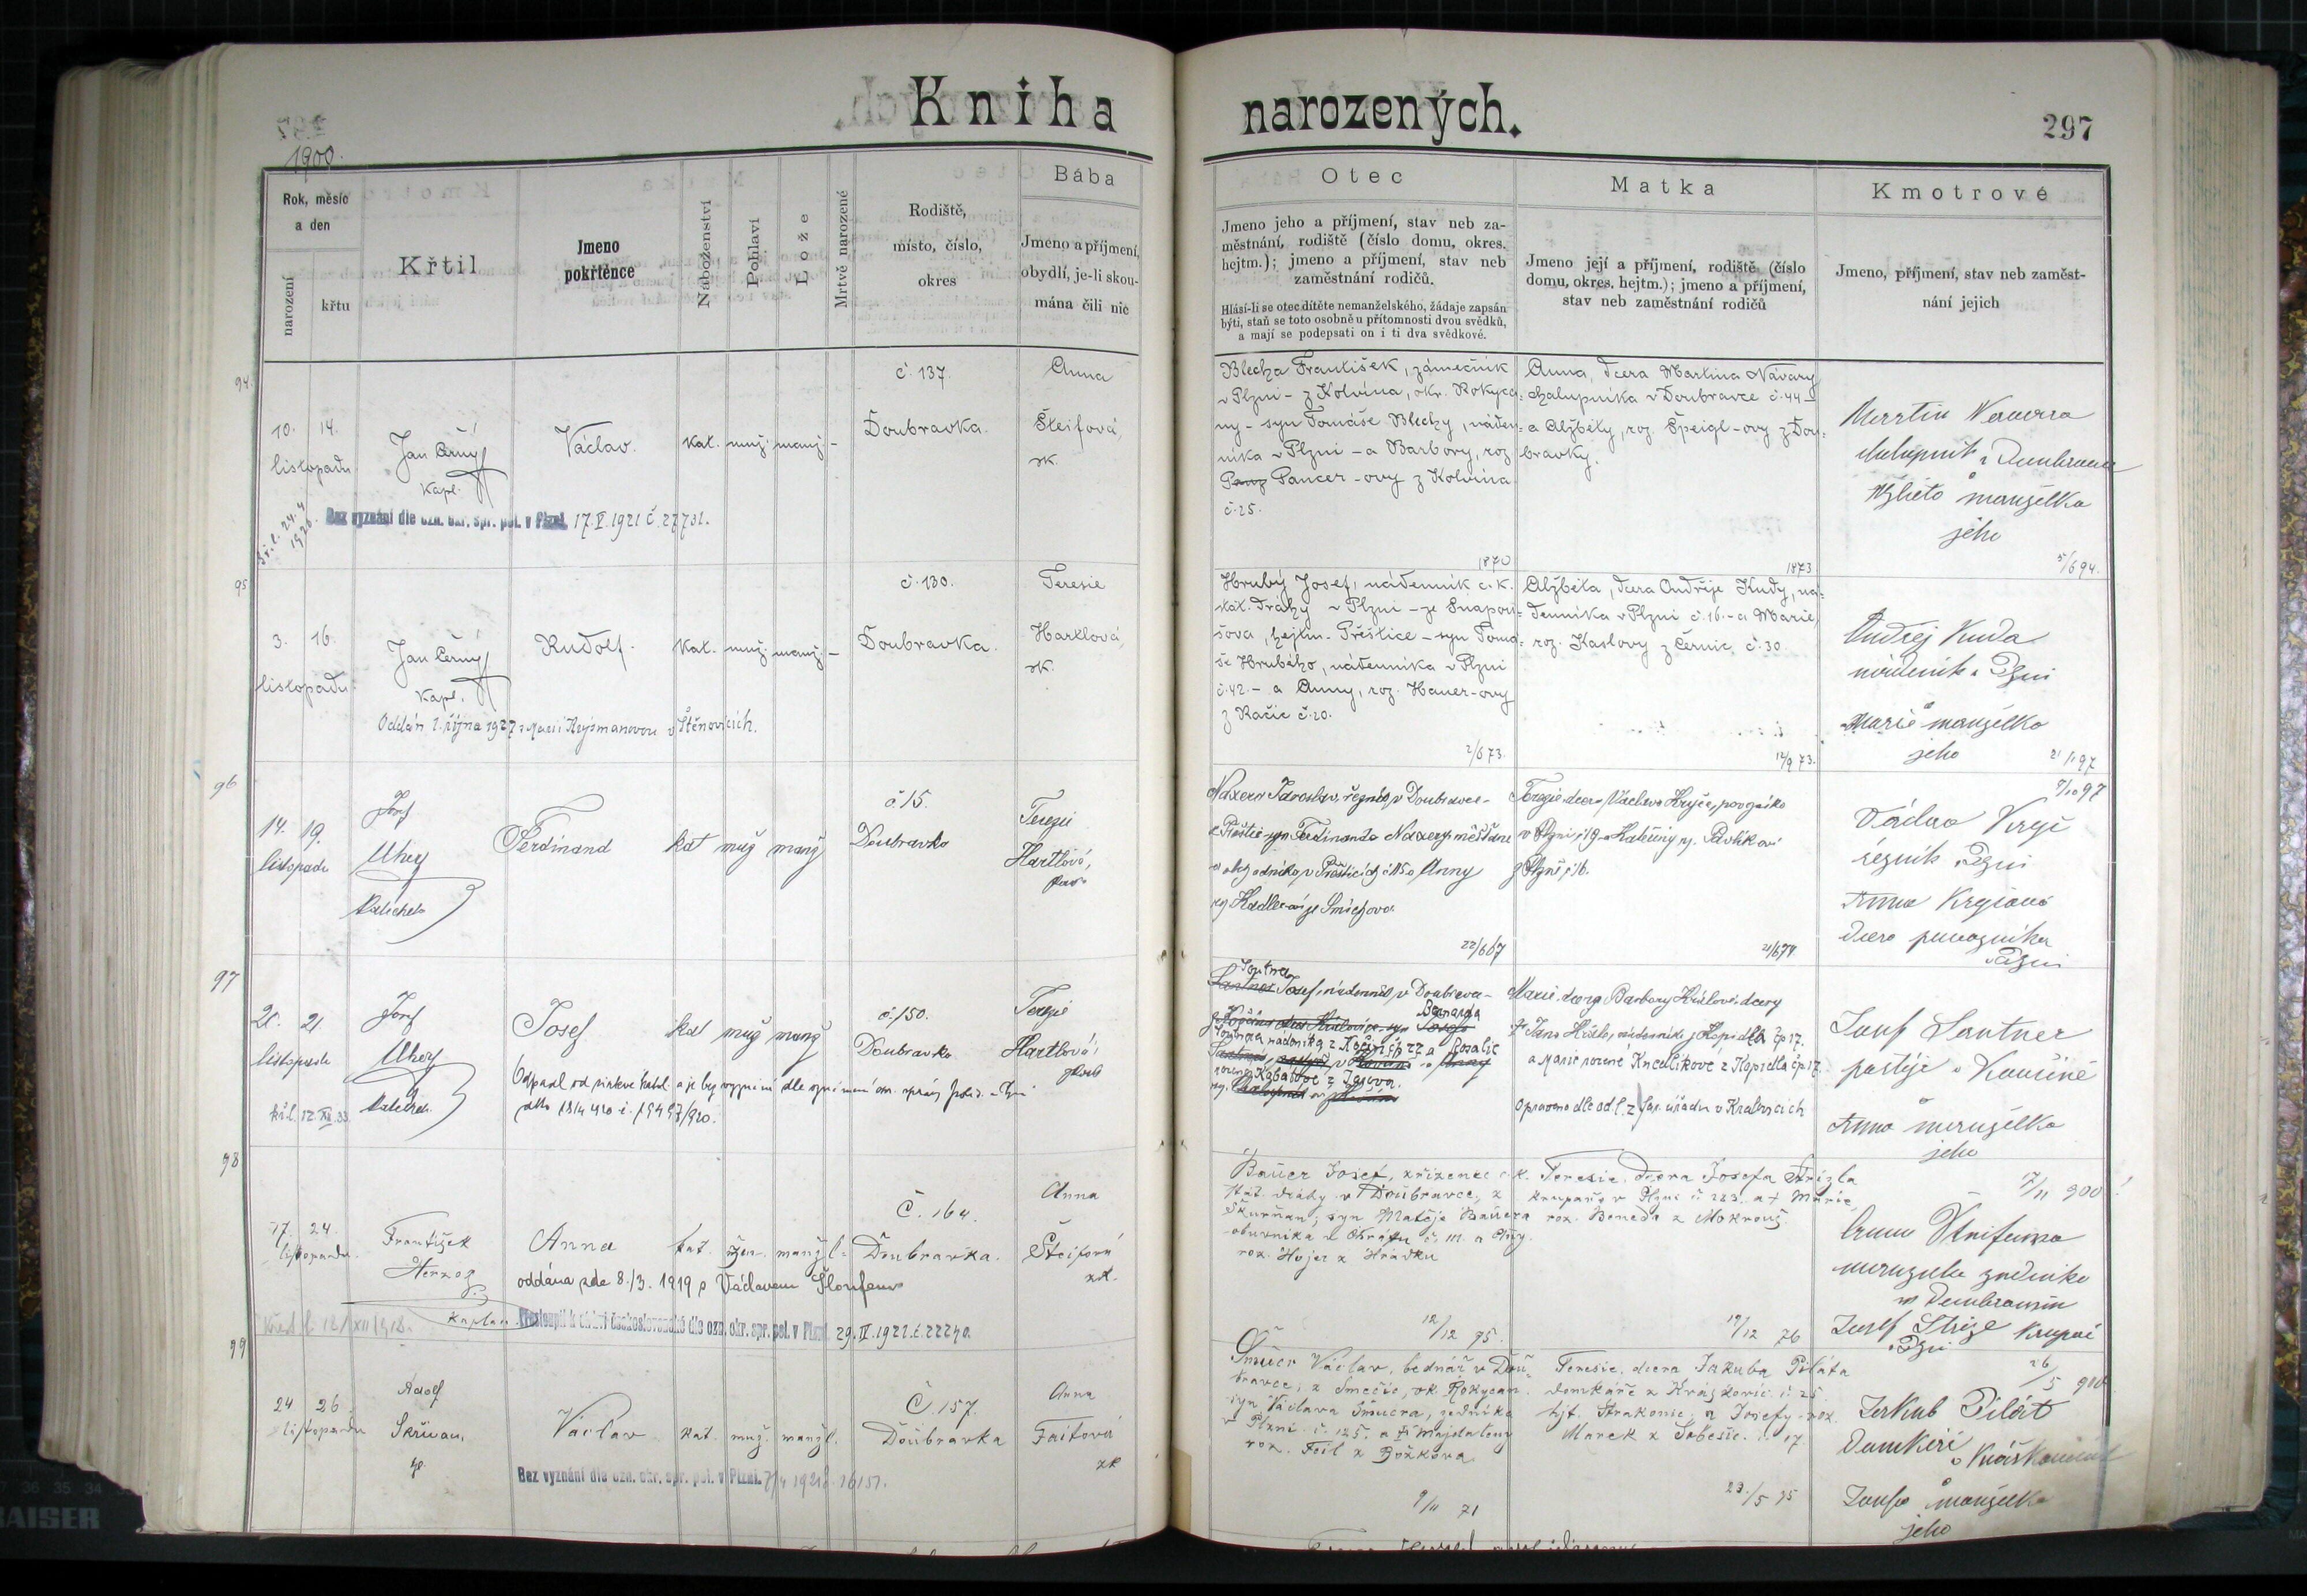 Kniha narozených.
297
1900.
Rok, měsíc
a den
narození
křtu
Křtil
Jmeno
pokřtěnce
Náboženství
Pohlaví
Lože
Mrtvě narozené
Rodiště,
místo, číslo,
okres
Bába
Jmeno a příjmení,
obydlí, je-li skou-
mána čili nic
Otec
Jmeno jeho a příjmení, stav neb za-
městnání, rodiště (číslo domu, okres.
hejtm.); jmeno a příjmení, stav neb
zaměstnání rodičů.
Hlásí-li se otec dítěte nemanželského, žádaje zapsán
býti, staň se toto osobně u přítomnosti dvou svědků,
a mají se podepsati on i ti dva svědkové.
Matka
Jmeno její a příjmení, rodiště (číslo
domu, okres. hejtm.); jmeno a příjmení,
stav neb zaměstnání rodičů
Kmotrové
Jmeno, příjmení, stav neb zaměst-
nání jejich
94.
10. 14.
listopadu
Jan Černý
kapl.
Václav.
kat. muž. manž. -
č. 137.
Doubravka.
Anna
Šteifová,
zk.
Bez vyznání dle ozn. okr. spr. pol. v Plzni 17.V.1921 č. 27731.
24.4
1926.
Blecha František, zámečník
v Plzni - z Kolvína, okr. Rokyca-
ny - syn Tomáše Blechy, náden-
níka v Plzni - a Barbory, roz.
Pancer-ovy z Kolvína
č. 25.
1870
Anna, dcera Martina Návary
chalupníka v Doubravce č. 44 -
a Alžběty, roz. Špeigl-ovy z Dou-
bravky.
1873
Martin
chalupník v
manželka
jeho
5/6 94.
95
3. 16.
listopadu
Jan Černý
kapl.
Rudolf.
kat. muž. manž. -
č. 130.
Doubravka.
Teresie
Hartlová,
zk.
Oddán 1. října 1927 s Marií Krýsmanovou v Štěnovicích.
Hrubý Josef, nádenník c. k.
stát. dráhy v Plzni - ze Snapou-
šova, hejtm. Přeštice - syn Tomá-
še Hrubého, nádenníka v Plzni
č. 42. - a Anny, roz. Hauer-ovy
z Račic č. 20.
2/6 73.
Alžběta, dcera Ondřeje Kudy, ná-
denníka v Plzni č. 16. - a Marie,
roz. Kaslovy z Černic, č. 30.
12/9 73.
Ondřej Kuda
nádeník v Plzni
Marie manželka
jeho
21/1 97
96
14. 19.
listopadu
Josef
Uhey
katecheta
Ferdinand
kat muž manž
č. 15.
Doubravka
Terezie
Hartlová,
Jaroslav, řezník v Doubravce -
z Přeštic syn Ferdinanda měšťana
a obchodníka v Přešticích č. 115 a Anny
roz. Kadlec-ovi ze Smíchova
22/6 67
Terezie dcera Václava Krýče, povozníka
v Plzni č. 19 a Kateřiny roz. Pavlíkovi
z Plzně č. 16.
21/6 74
7/10 97
Václav Krýč
řezník v Plzni
Anna
dcera povozníka
v Plzni
97
20. 21.
listopadu
Josef
Uhey
katecheta
Josef
kat muž manž
č. 150.
Doubravka
Terezie
Hartlová,
Odpadl od církve katol. a je bez vyznání dle
dto 18/4 920 č. 19497/920.
kř. l. 12. XI. 33
Josef, nádenník v Doubravce -
Bernarda
nádeníka z Kočína čp. 22 a Rosalie
rozené
Marie, dcera Barbory Králové, dcery
Jana Krále, nádeníka z Kopidla čp 17.
a Marie rozené Knedlíkové z Kopidla čp 17.
Opraveno dle od. l. z far. úřadu v Kralovicích
Josef Santner
pastýř v
Anna manželka
jeho
98
17. 24.
listopadu.
František
Herzog
kaplan.
Anna
kat. žen. manžl.
Č. 164.
Doubravka.
Anna
Šteifová
zk.
oddána zde 8./3. 1919 s Václavem Šloufem
Přestoupil k církvi československé dle ozn. okr. spr. pol. v Plzni 29. IV. 1922. č. 22240.
Křest. l. 18/XII 1918.
Bauer Josef, zřízenec c. k.
stát. dráhy v Doubravce, z
Škurňan, syn Matěje Bauera
obuvníka v č. 111. a
roz. Hajer z Hrádku
12/12 75.
Teresie, dcera Josefa Strizla
krupaře v Plzni č. 283. a † Marie,
roz. Beneda z Mokrouš.
19/12 76
7/11 900
manželka zedníka
v Doubravce
Josef krupař
v Plzni
99
24. 26.
listopadu
Adolf
Skřivan,
Václav
kat. muž. manžl.
Č. 157.
Doubravka
Anna
Faitová
zk
Bez vyznání dle ozn. okr. spr. pol. v Plzni. 7/4 1921 č. 16151.
Šmucr Václav, bednář v Dou-
bravce, z Smečic, ok. Rokycan.
syn Václava Šmucra, zedníka
v Plzni č. 125. a † Majdaleny
roz. Feil z Božkova
9/11 71
Teresie, dcera Jakuba Piláta
domkáře z Kraskovic č. 25.
hjt. Strakonic, a Josefy roz.
Marek z č. 17.
23./5 75
26/5 900
Jakub Pilát
domkář
v
Josefa manželka
jeho